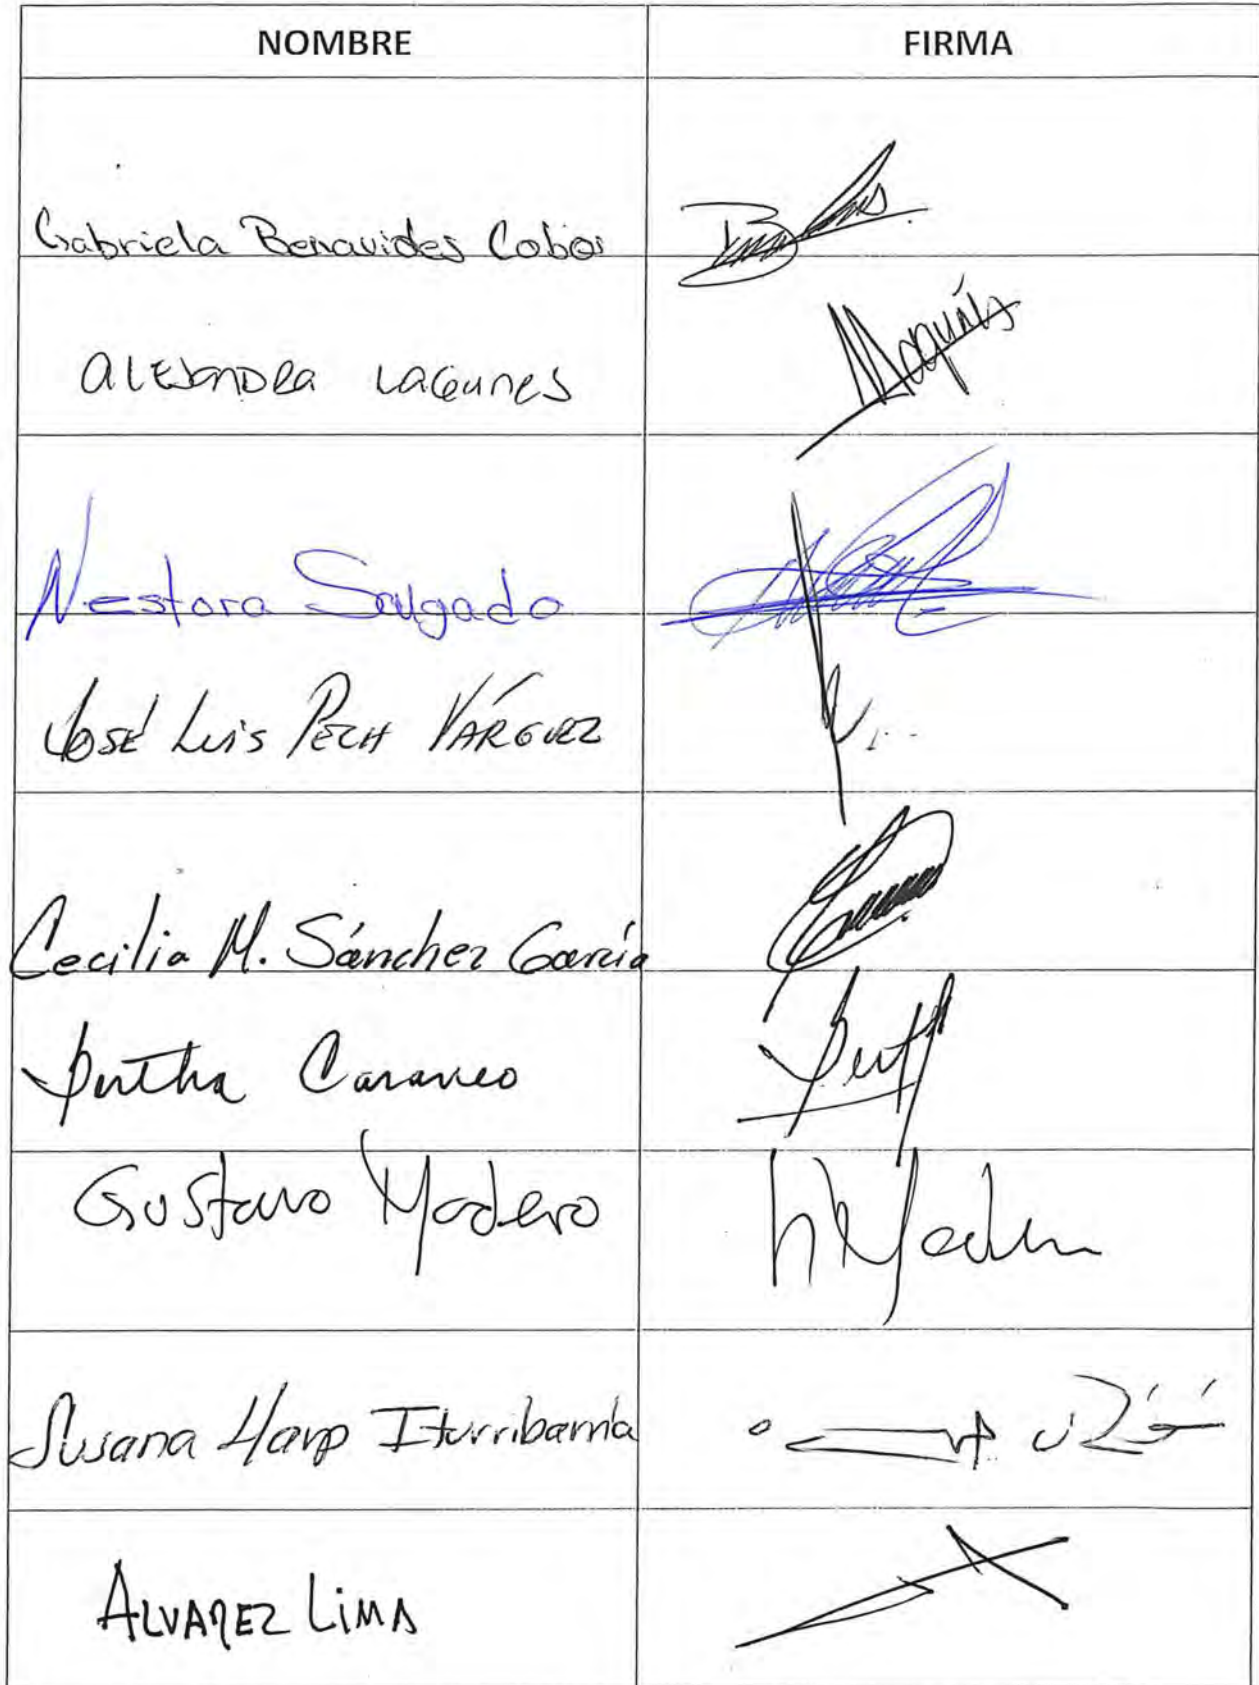 NOMBRE FIRMA
Gabriela Benavides Cobos
Alejandra Lagunes
Nestora Salgado
José Luis Pech Várguez
Cecilia M. Sánchez García
Bertha Caraveo
Gustavo Madero
Susana Harp Iturribarría
ALVAREZ LIMA